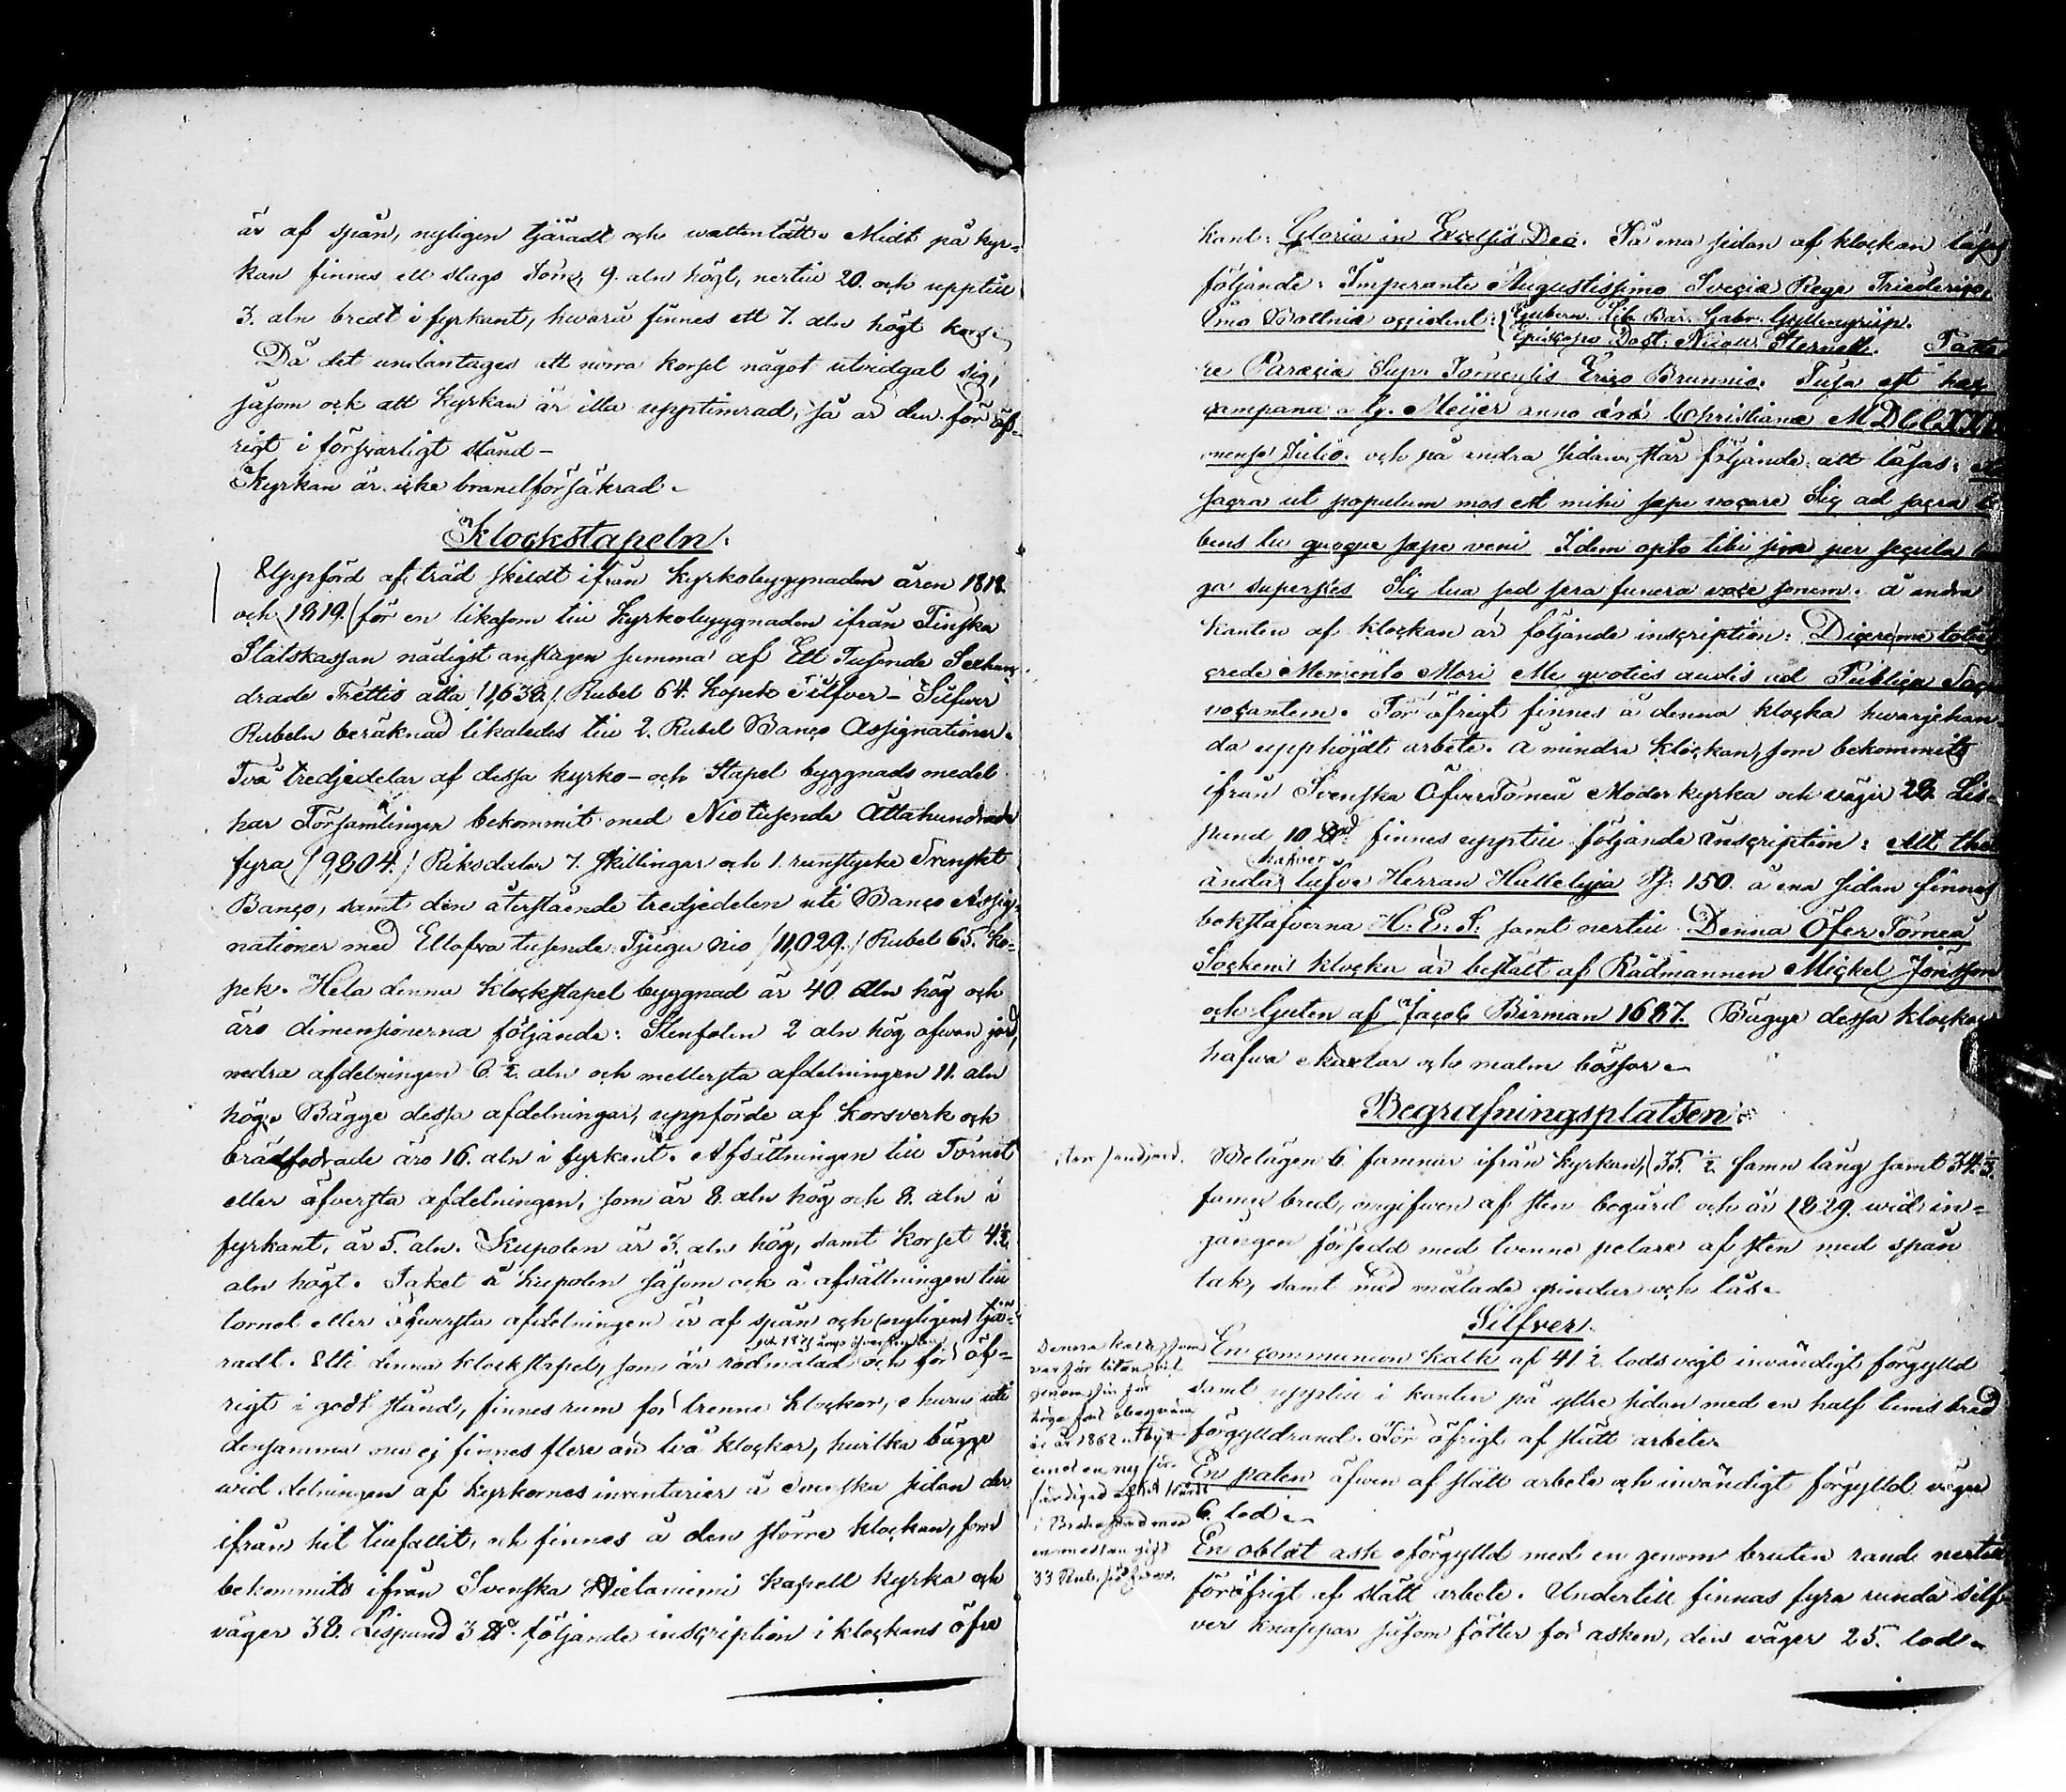 är af spån, nyligen tjäradt och wattentätt. Midt på kyr-
kan finnes ett slags Torn, 9. aln högt, nertill 20. och upptill
3. aln bredt i fyrkant, hwarå finnes ett 7. aln högt kors.
Då det undantages att norra korset något utvidgat sig,
såsom ock att Kyrkan är illa upptimrad, så är den för öf-
rigt i försvarligt stånd -
Kyrkan är icke brandförsäkrad.
Klockstapeln.
Uppförd af träd skildt ifrån Kyrkobyggnaden åren 1818.
och 1819. för en likasom till Kyrkobyggnaden ifrån Finska
Statskassan nådigst anslagen summa af Ett Tusende Sexhun-
drade Trettio åtta /1,638./ Rubel 64. kopek Silfver - Silfver
Rubeln beräknad likaledes till 2. Rubel Banco Assignationer.
Två tredjedelar af dessa kyrko- och Stapel byggnads medel
har Församlingen bekommit med Niotusende Åttahundrade
fyra /9,804./ Riksdaler 7. skillingar och 1. runstycke Svenskt
Banco, samt den återstående tredjedelen uti Banco Assig-
nationer med Ellofva tusende Tjugu nio /11,029./ Rubel 65. ko-
pek. Hela denna Klockstapel byggnad är 40. Aln hög och
äro dimensionerna följande: Stenfoten 2 aln hög ofwan jord,
nedra afdelningen 6 ½. aln och mellersta afdelningen 11. aln
hög. Bägge dessa afdelningar, uppförde af korsverk och
brädfodrade äro 16. aln i fyrkant. Afsättningen till Tornet
eller öfversta afdelningen, som är 8. aln hög och 8. aln i
fyrkant, är 5. aln. Kupolen är 3. aln hög, samt Korset 4 ½
aln högt. Taket å kupolen såsom ock å afsättningen till
tornet eller öfwersta afdelningen är af spån och nyligen tjä-
radt. Uti denna klockstapel, som är rödmålad och för öf-
rigt i godt stånd, finnes rum för trenne klockor, ehuru uti
densamma nu ej finnes flere än två klockor, hvilka bägge
wid delningen af Kyrkornes inventarier å Svenska sidan der
ifrån hit tillfallit, och finnes å den större klockan, som
bekommits ifrån Svenska Hietaniemi Kapell Kyrka och
väger 38. Lispund 3 ℔. följande inscription i klockans öfre
kant: Gloria in Excelsis Deo. På ena sidan af klockan läses
följande: Imperante Augustissimo Sveciæ Rege Friederico,
Gubern. Lib. Bar. Gabr. Gyllengrip.
Bottniæ occident:
Episcopo Doct. Nicol. Sternell. Pasto-
re Paræciæ Sup. Tornensis Erico Brunnio. Fusa est hæc
campana a G. Meijer anno æræ Christianæ
mense Julio. och på andra sidan står följande att läsas:
sacra ut populum mos est mihi sæpe vocare Sic ad sacra
bens tu quoque sæpe veni Idem opto tibi sim per secula
ga superstes Sic tua sed sera funera voce sonem. å andra
kanten af klockan är följande inscription: Dicere me
crede Memento Mori Me quoties audis ad Publica
vocantem. För öfrigt finnes å denna klocka hwarjehan-
da upphöjdt arbete. å mindre klockan, som bekommits
ifrån Svenska ÖfverTorneå Moderkyrka och väger 28. Lis-
pund 10 ℔. finnes upptill följande inscription: Alt thet
hafver
anda lofve Herran Halleluja Ps: 150. å ena sidan finnes
bokstafverna H: E: S: samt nertill Denna Öfer Torneå
Sockens klocka är bestält af Rådmannen Mickel Jönsson
och Guten af Jacob Birman 1687. Bägge dessa klockor
hafwa axlar och malm bössor.
Begrafningsplatsen.
Belägen 6. famnar ifrån kyrkan, 35. ½. famn lång samt 34. ⅓.
famn bred, omgifwen af sten begård och år 1829. wid in-
gången försedd med tvenne pelare af sten med spån
tak, samt med målade grindar och lås.
Silfver.
Denna kalk, som
var för liten, blef
genom sin för
år 1862 utbytt
emot en ny för-
färdigad
i Brahestad med
en mellan gift
33 Rub.
En communion kalk af 41 ½. lods vigt invändigt förgylld
samt upptill i kanten på yttre sidan med en half tums bred
förgylld rand. För öfrigt af slätt arbete.
En paten äfwen af slätt arbete och invändigt förgylld väger
6. lod.
En oblat ask oförgylld med en genom bruten rand nertill
föröfrigt af slätt arbete. Undertill finnas fyra runda silf-
ver knappar såsom fötter för asken, den väger 25. lod.